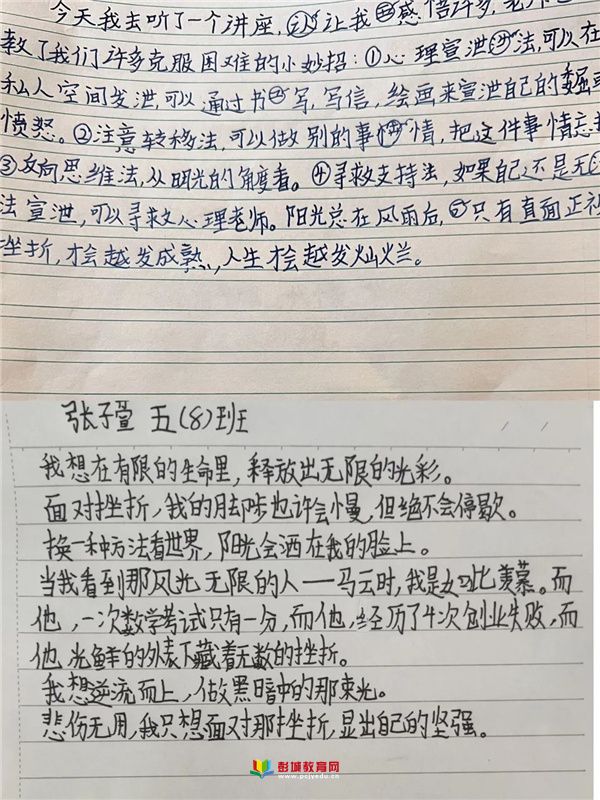 今天我去听了一个讲座,让我感悟许多,老师
教了我们许多克服困难的小妙招:①心理宣泄法,可以在
私人空间发泄,可以通过书写,写信,绘画来宣泄自己的委屈
愤怒。②注意转移法,可以做别的事情,把这件事情忘
③反向思维法,从阳光的角度看。④寻求支持法,如果自己还是无
法宣泄,可以寻求心理老师。阳光总在风雨后,只有直面正视
挫折,才会越发成熟,人生才会越发灿烂。
张子萱 五(8)班
我想在有限的生命里,释放出无限的光彩。
面对挫折,我的脚步也许会慢,但绝不会停歇。
换一种方法看世界,阳光会洒在我的脸上。
当我看到那风光无限的人——马云时,我是如此羡慕。而
他,一次数学考试只有一分,而他,经历了4次创业失败,而
他光鲜的外表下藏着无数的挫折。
我想逆流而上,做黑暗中的那束光。
悲伤无用,我只想面对那挫折,显出自己的坚强。
彭城教育网
www.pcjyedu.cn